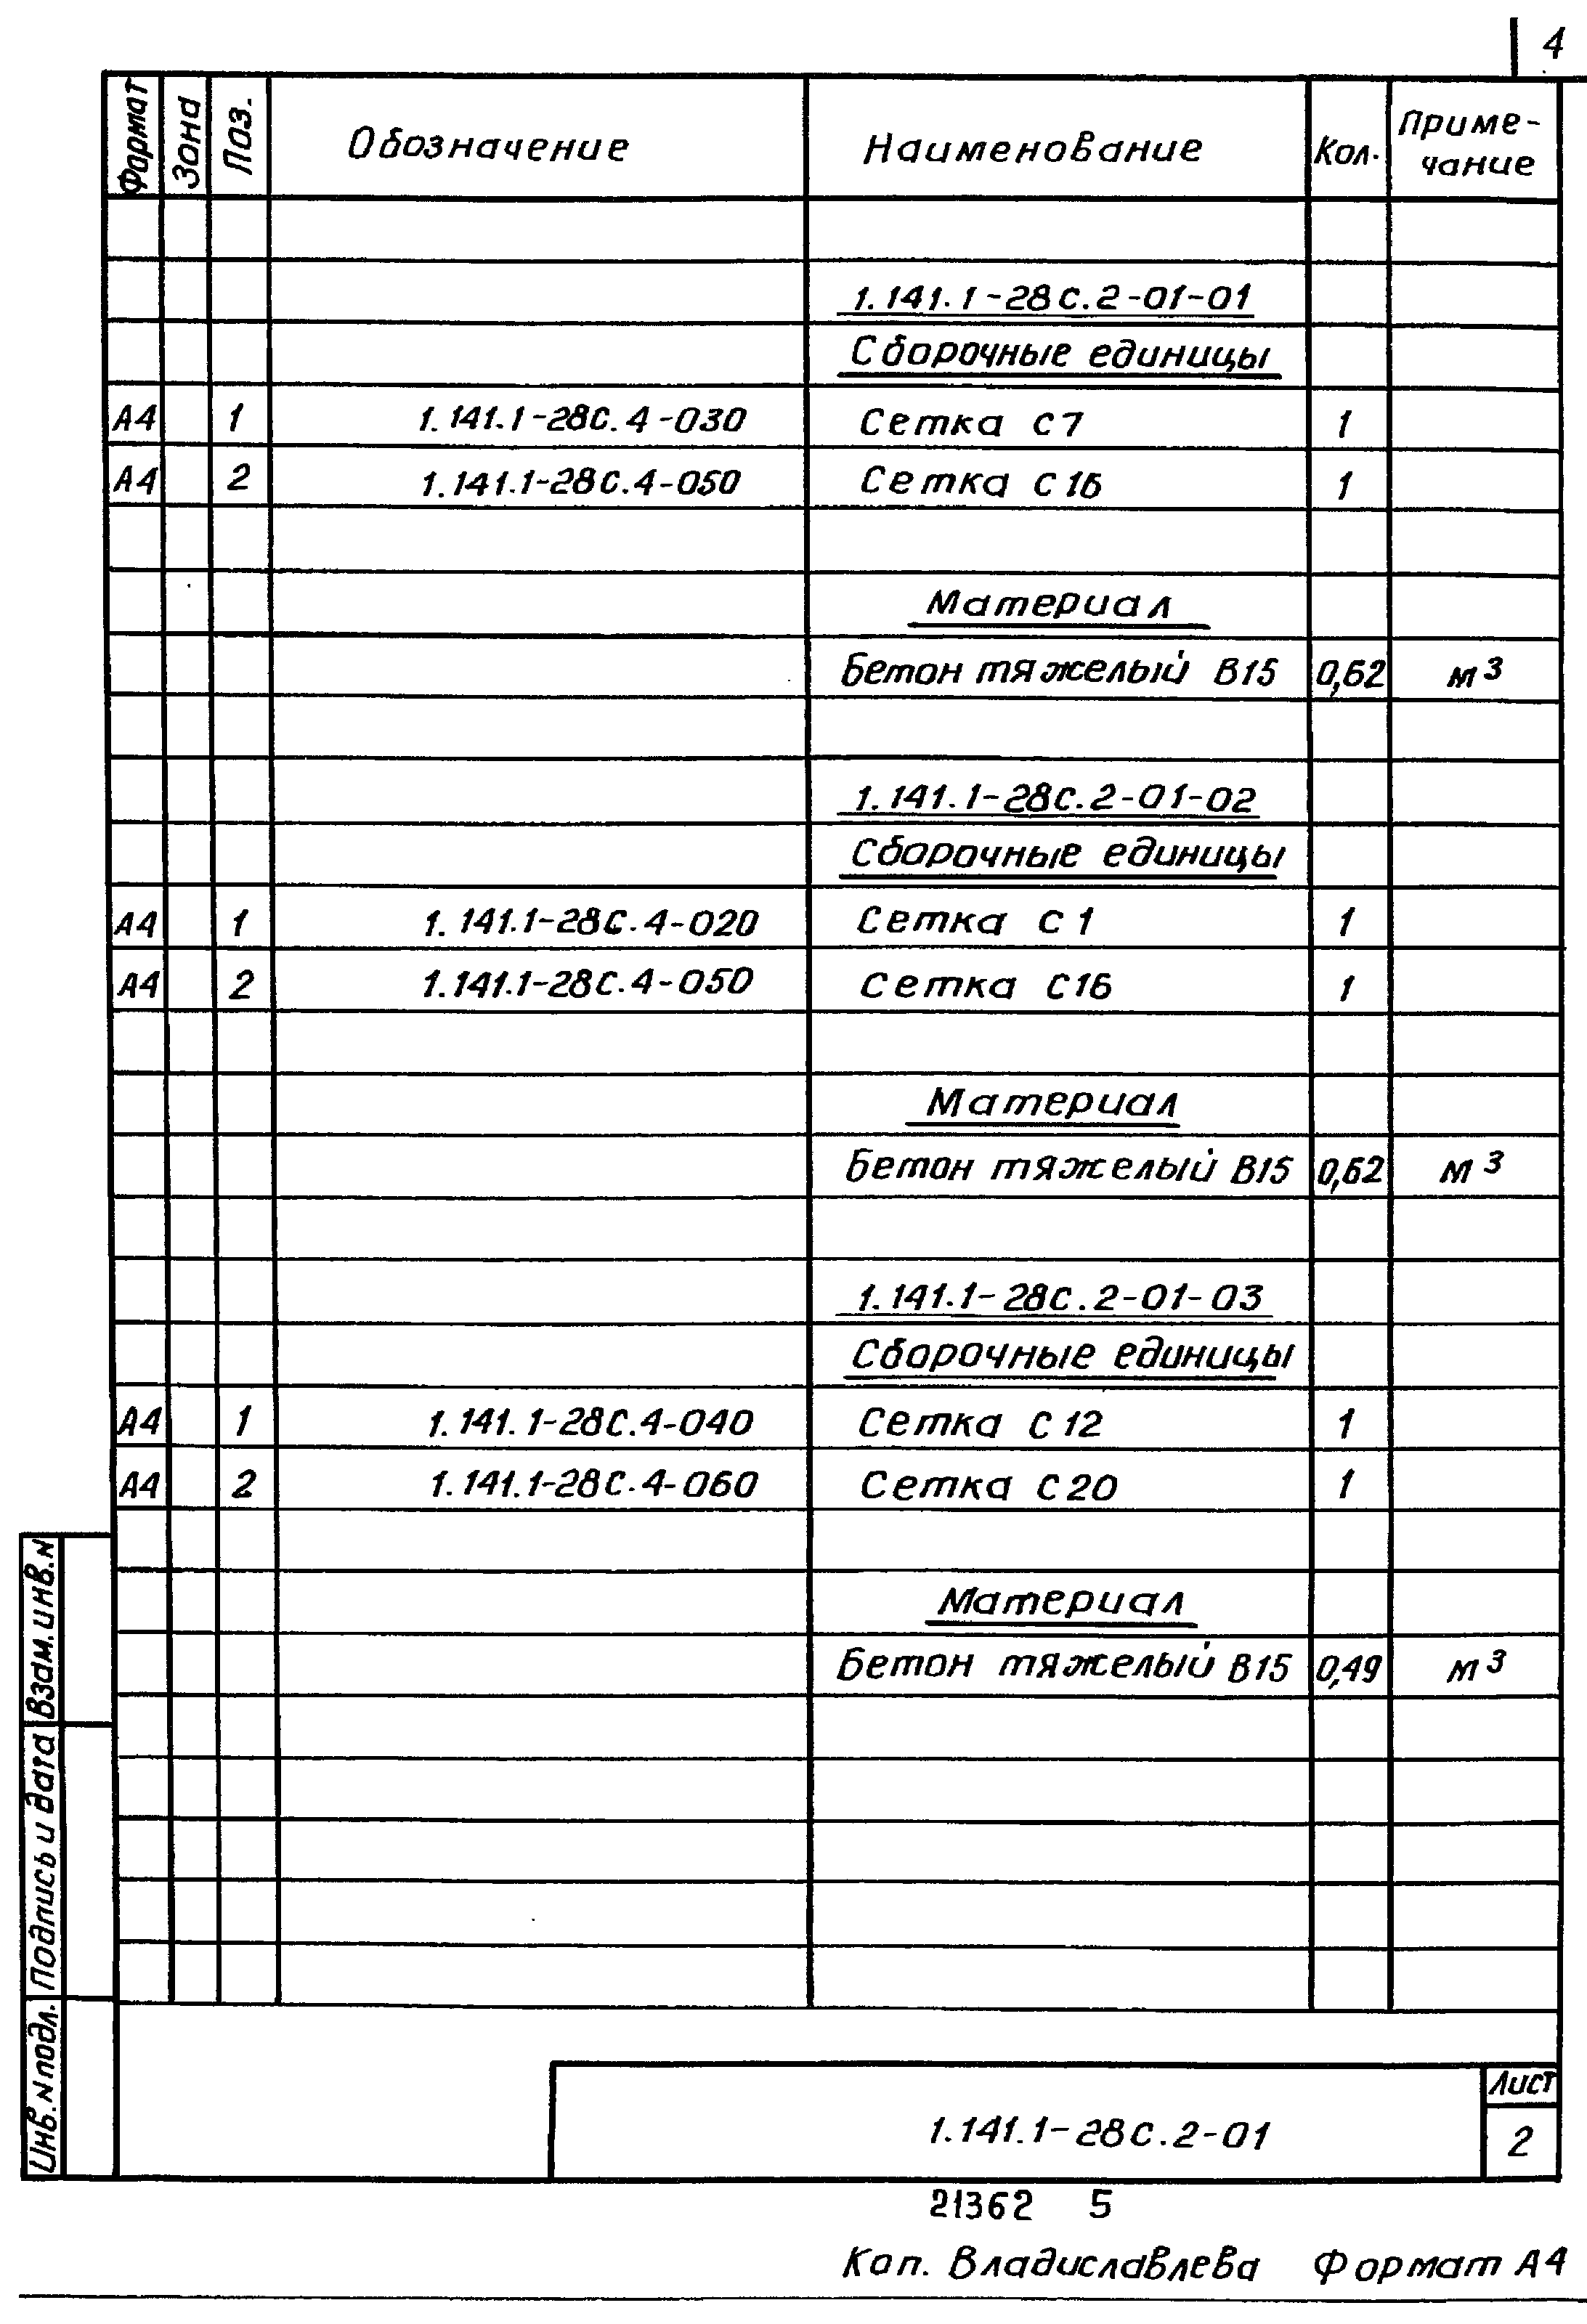 4
Формат Зона Поз. Обозначение Наименование Кол. Приме-
чание
1.141.1-28С.2-01-01
Сборочные единицы
А4 1 1.141.1-28С.4-030 Сетка С7 1
А4 2 1.141.1-28С.4-050 Сетка С16 1
Материал
Бетон тяжелый В15 0,62 м3
1.141.1-28С.2-01-02
Сборочные единицы
А4 1 1.141.1-28С.4-020 Сетка С1 1
А4 2 1.141.1-28С.4-050 Сетка С16 1
Материал
Бетон тяжелый В15 0,62 м3
1.141.1-28С.2-01-03
Сборочные единицы
А4 1 1.141.1-28С.4-040 Сетка С12 1
А4 2 1.141.1-28С.4-060 Сетка С20 1
Материал
Бетон тяжелый В15 0,49 м3
Взам. инв. N
Подпись и дата
Инв. N подл.
1.141.1-28С.2-01
Лист
2
21362 5
Коп. Владиславлева Формат А4